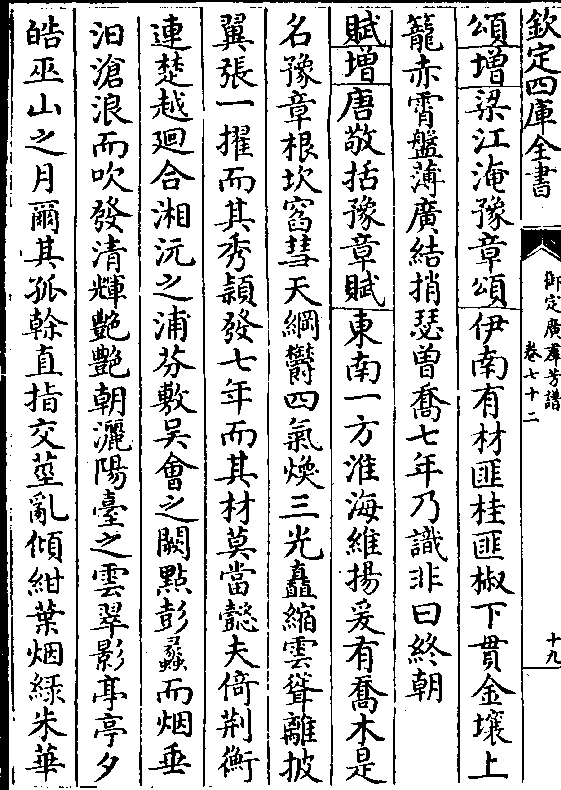 欽定四庫全書
御定廣羣芳譜
卷七十二
十九
頌增梁江淹豫章頌伊南有材匪桂匪椒下貫金壤上
籠赤霄盤薄廣結捎瑟曾喬七年乃識非曰終朝
賦增唐敬括豫章賦東南一方淮海維揚爰有喬木是
名豫章根坎窞彗天綱欝四氣煥三光矗縮雲聳離披
翼張一擢而其秀穎發七年而其材莫當懿夫倚荆衡
連楚越廻合湘沅之浦芬敷吳會之闕點彭蠡而烟垂
汩滄浪而吹發清輝艷艷朝灑陽臺之雲翠影亭亭夕
皓巫山之月爾其孤榦直指交莖亂傾紺葉烟緑朱華